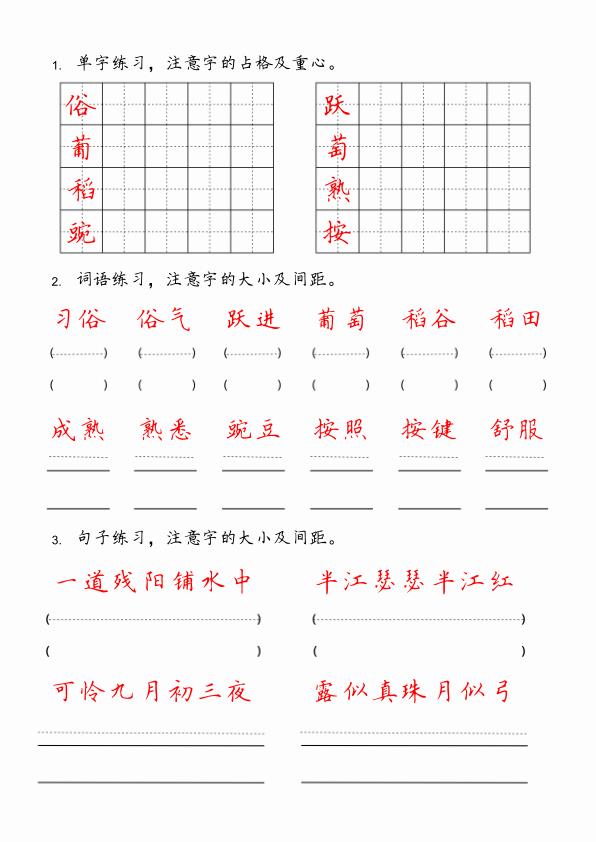 1. 单字练习，注意字的占格及重心。
俗 跃
葡 萄
稻 熟
豌 按
2. 词语练习，注意字的大小及间距。
习俗 俗气 跃进 葡萄 稻谷 稻田
( ) ( ) ( ) ( ) ( ) ( )
( ) ( ) ( ) ( ) ( ) ( )
成熟 熟悉 豌豆 按照 按键 舒服
3. 句子练习，注意字的大小及间距。
一道残阳铺水中 半江瑟瑟半江红
( ) ( )
( ) ( )
可怜九月初三夜 露似真珠月似弓